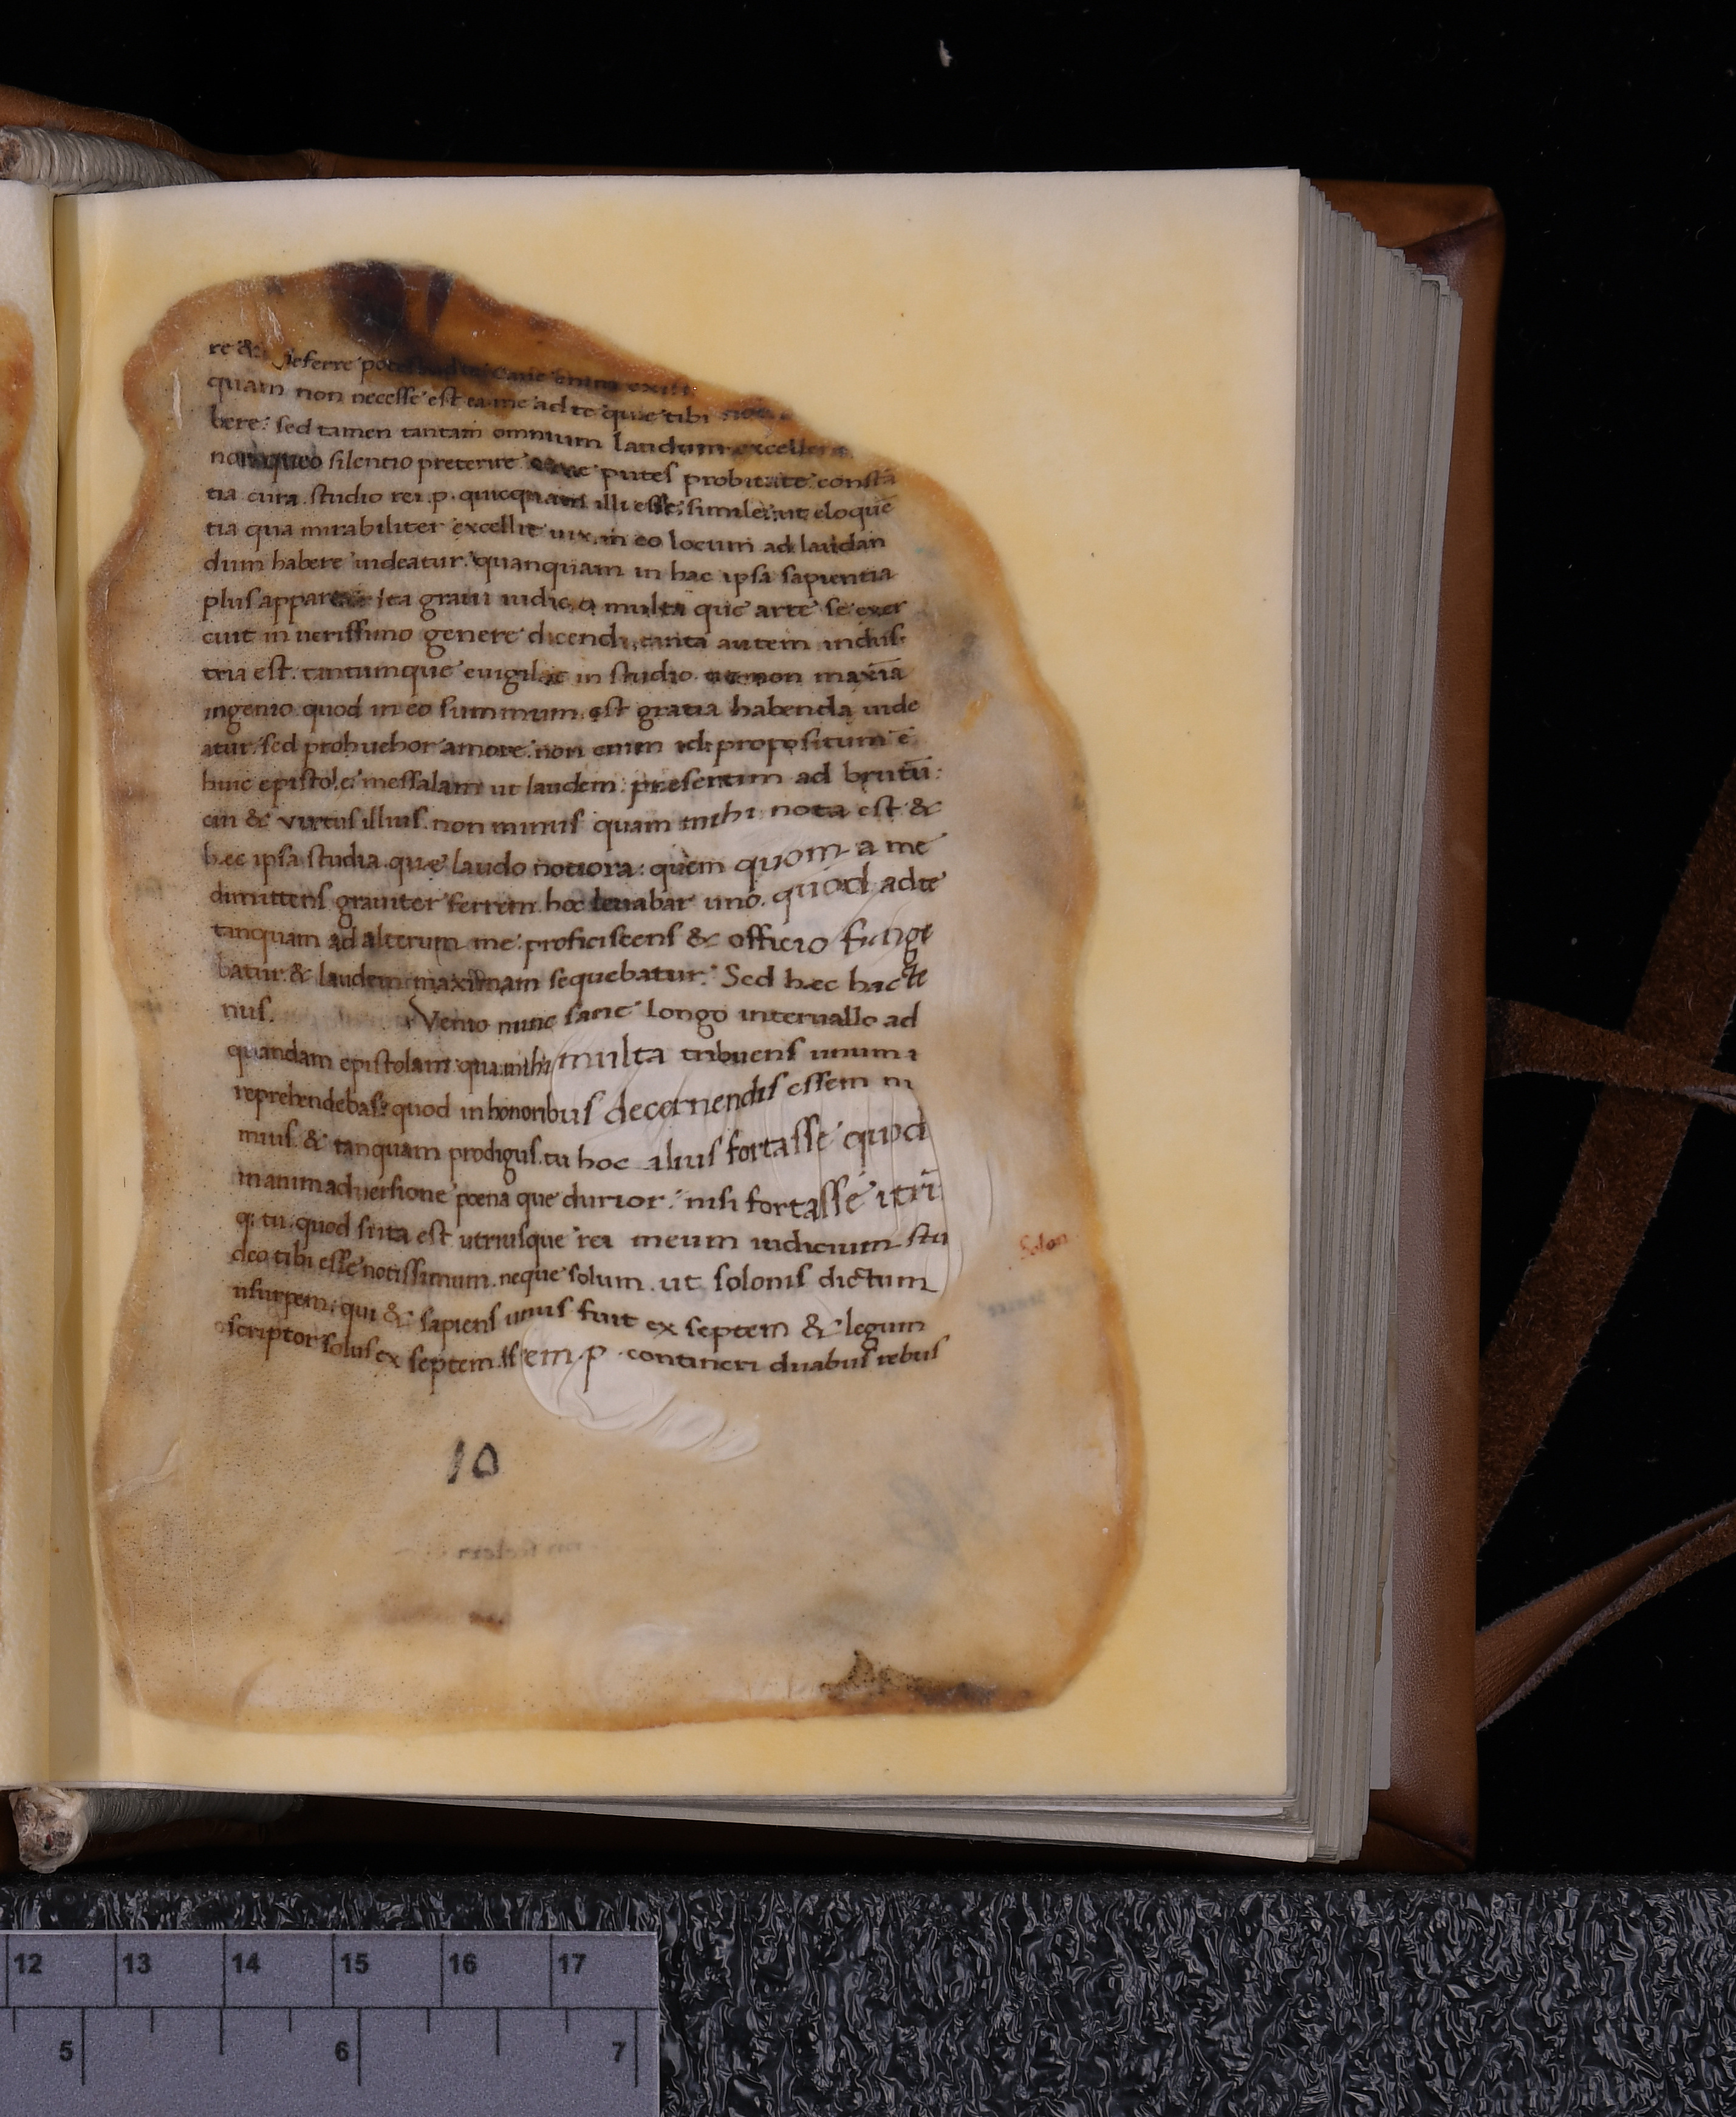 re & deferre potest ad te Caue enim existi
quam non necesse est ea me ad te quae tibi nota
bere: sed tamen tantam omnium laudum excellen
non queo silentio preterire Caue putes probitate constā
tia cura studio rei .p. quicquam illi esse simile: ut eloquē
tia qua mirabiliter excellit uix in eo locum ad laudan
dum habere uideatur. quanquam in hac ipsa sapientia
plus apparet ita graui iudicio multa que arte se exer
cuit in uerissimo genere dicendi, tanta autem indus
tria est. tantumque euigilat in studio. ut non maxīa
ingenio quod in eo summum est gratia habenda uide
atur. sed prohuehor amore. non enim id propositum ē
huic epistolę messalam ut laudem: presertim ad brutū:
cui & virtus illius. non minus quam mihi nota est &
hęc ipsa studia quę laudo notiora: quem quom a me
dimittens grauiter ferrem. hoc leuabar uno. quod ad te
tanquam ad alterum me proficiscens & officio funge
batur & laudem maximam sequebatur. Sed hæc hacte
nus. Venio nunc sane longo interuallo ad
quandam epistolam qua mihi multa tribuens unum
reprehendebas: quod in honoribus decernendis essem ni
mius & tanquam prodigus. tu hoc alius fortasse quod
in animaduersione poena que durior. nisi fortasse utrū
q; tu. quod si ita est utriusque rei meum iudicium stu
deo tibi esse notissimum. neque solum. ut solonis dictum
usurpem: qui & sapiens unus fuit ex septem & legum
scriptor solus ex septem. Is rem .p. contineri duabus rebus
Solon
10